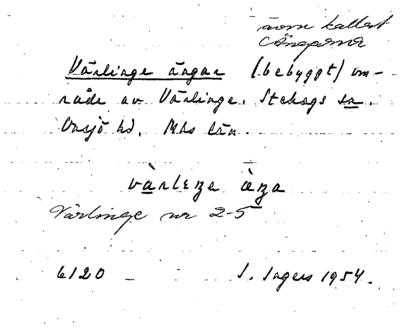 även kallat
Värlinge ängar (bebyggt) om-
råde av Värlinge. Stehags sn.
Onsjö hd. Mhs län.
värleŋe äŋa
Värlinge nr 2-5
6120 — I. Ingers 1954.